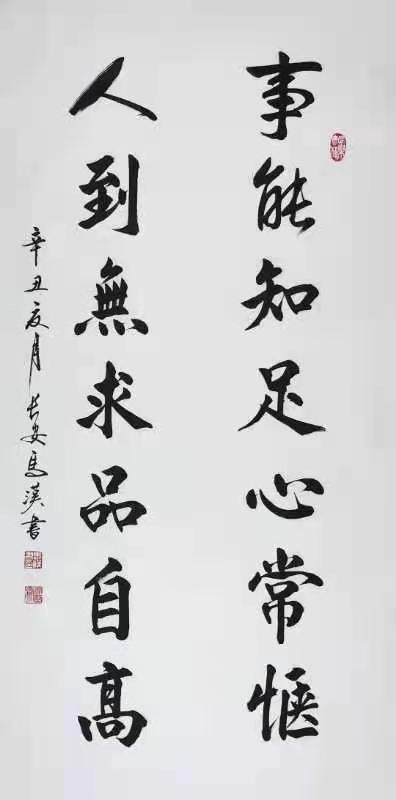 事能知足心常惬
人到無求品自高
辛丑夏月長安馬漢書